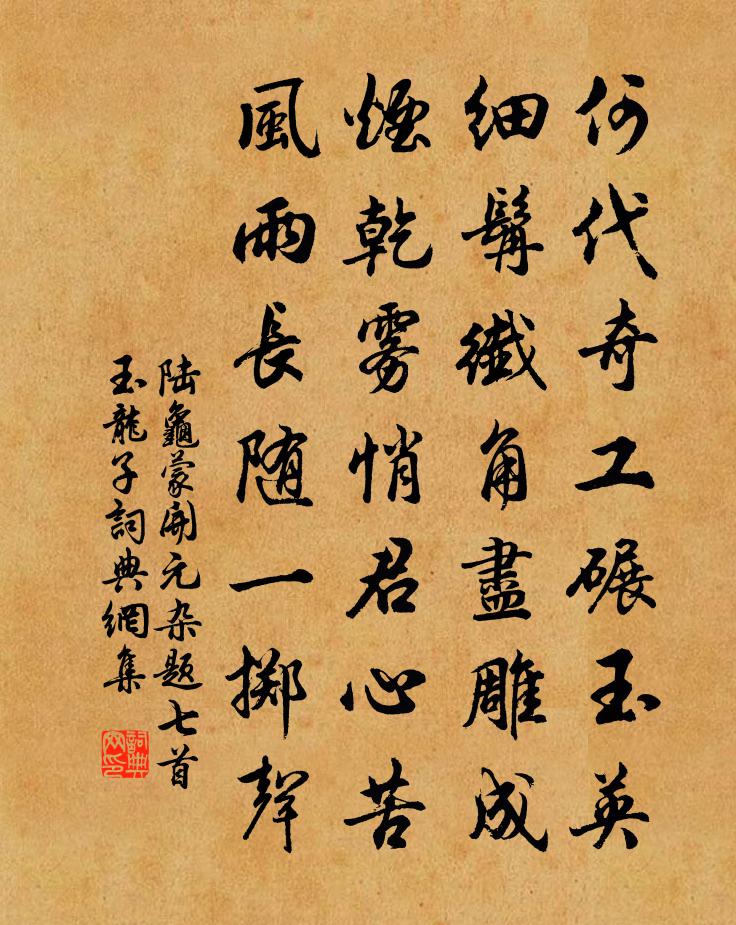 何代奇工碾玉英
细髯纖角盡雕成
煙乾雾悄君心苦
風雨長随一掷聲
陆龜蒙開元杂题七首
玉龍子詞典網集
詞典网印